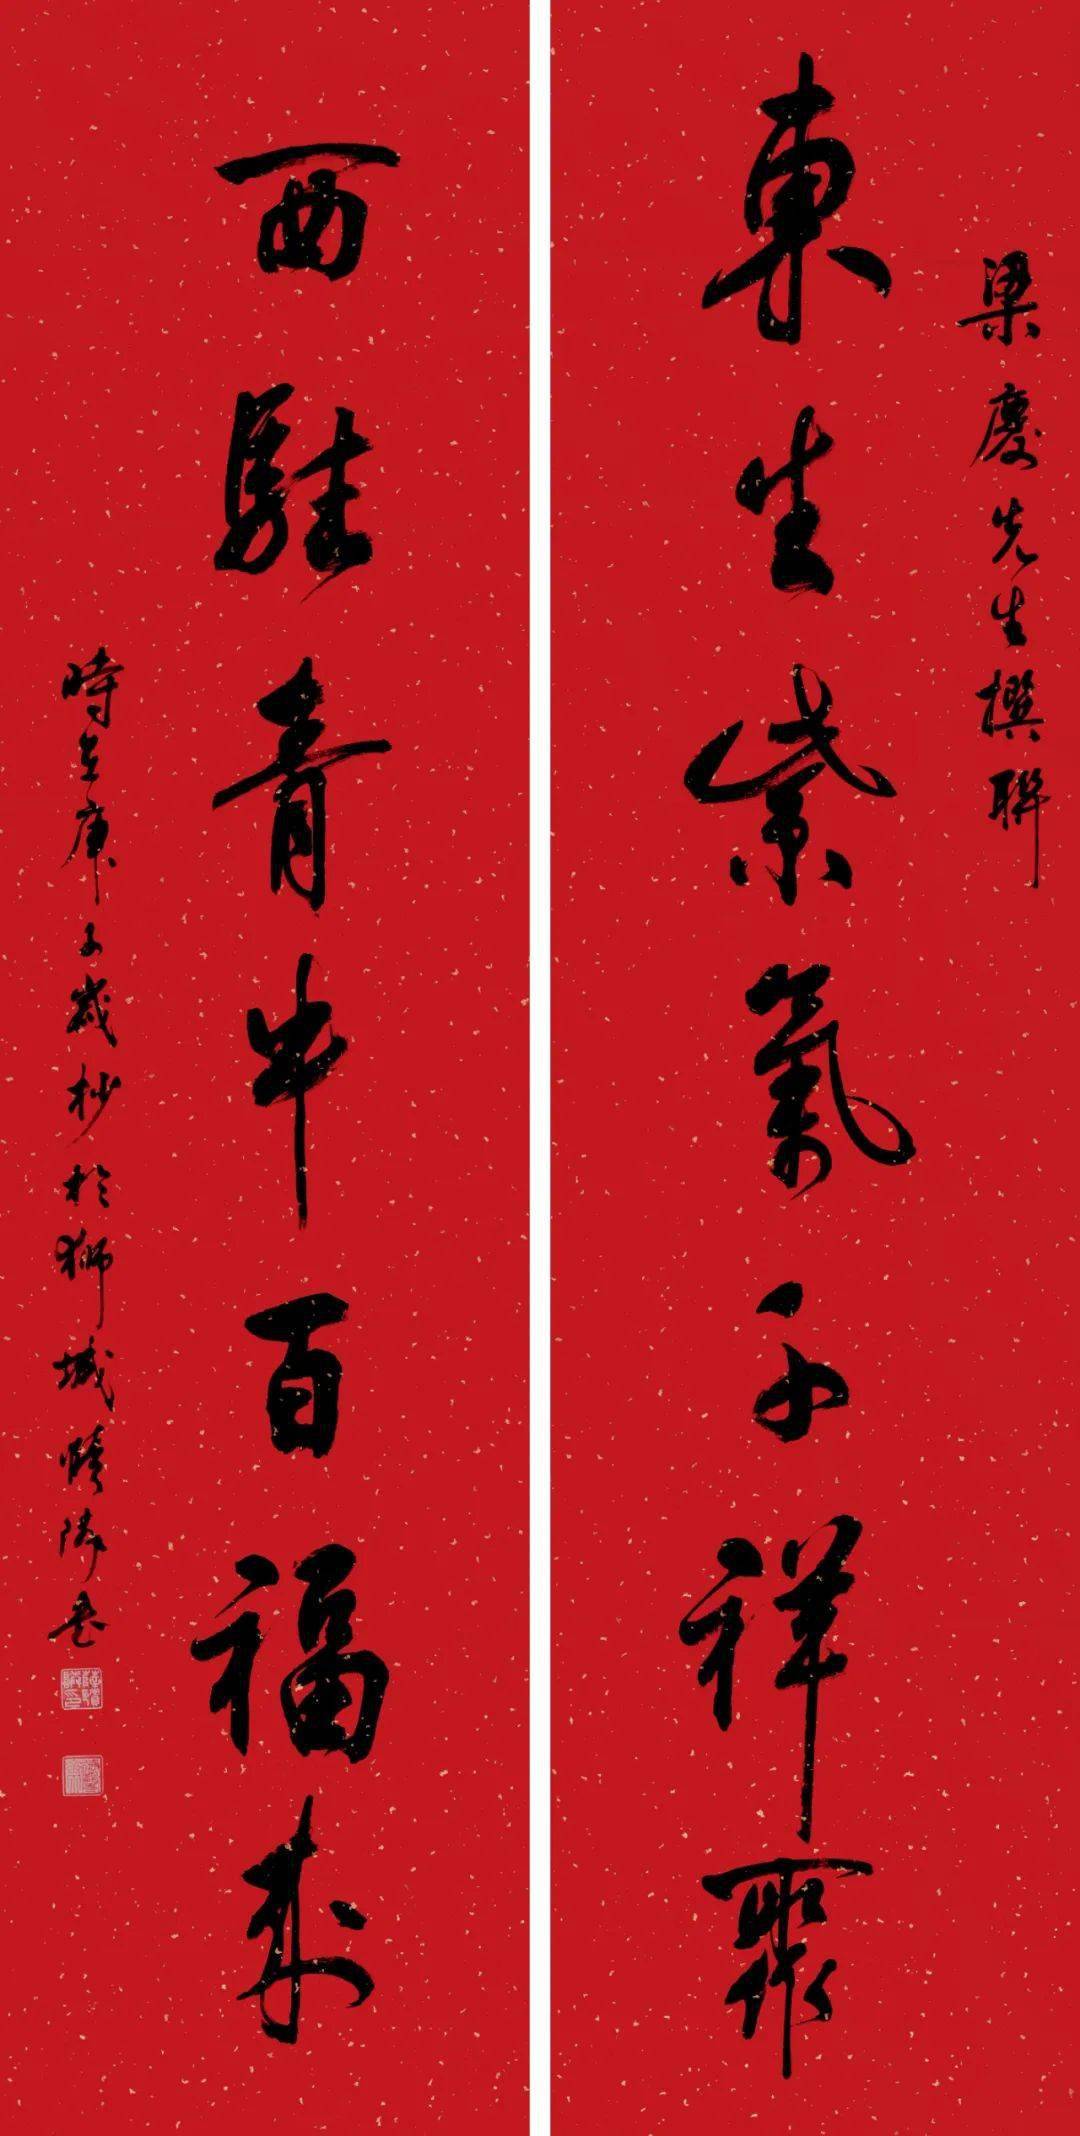 梁慶先生撰聯
東生紫氣千祥聚
西駐青牛百福來
時在庚子歲杪於獅城